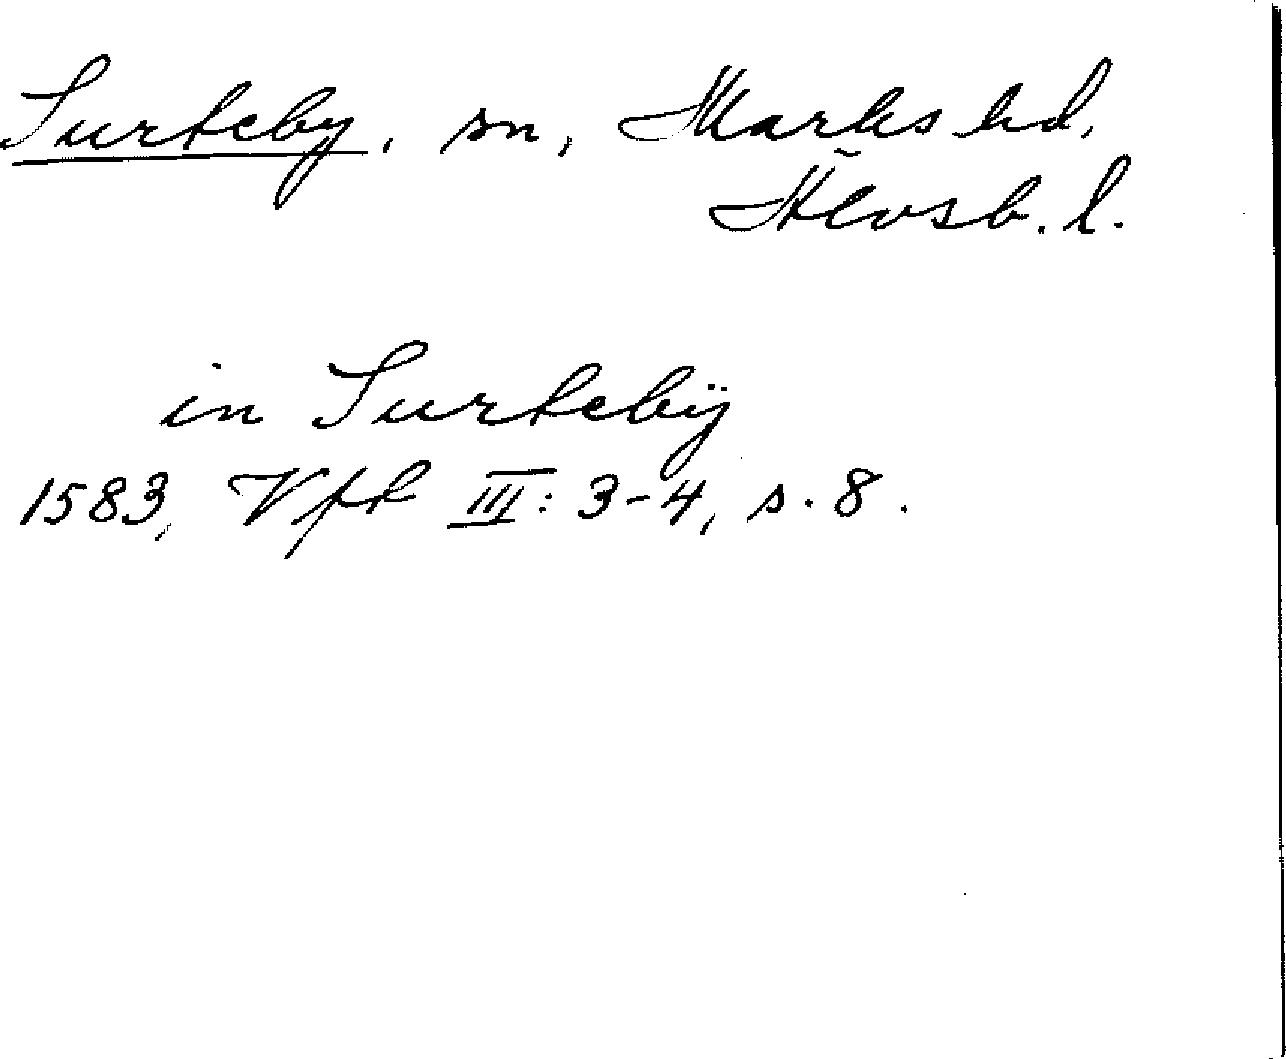 Surteby, sn, Marks hd,
Älvsb. l.
in Surtebÿ
1583, Vft III: 3-4, s. 8.